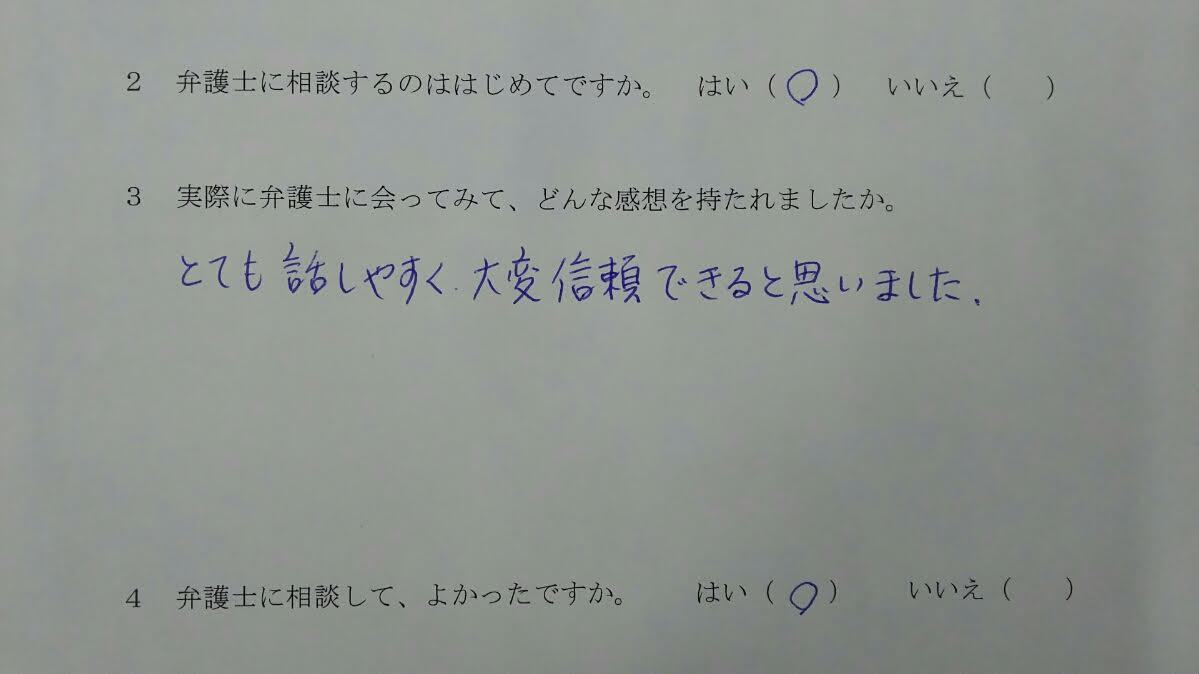 ２　弁護士に相談するのははじめてですか。　はい（○）　いいえ（　）
３　実際に弁護士に会ってみて、どんな感想を持たれましたか。
とても話しやすく、大変信頼できると思いました。
４　弁護士に相談して、よかったですか。　はい（○）　いいえ（　）